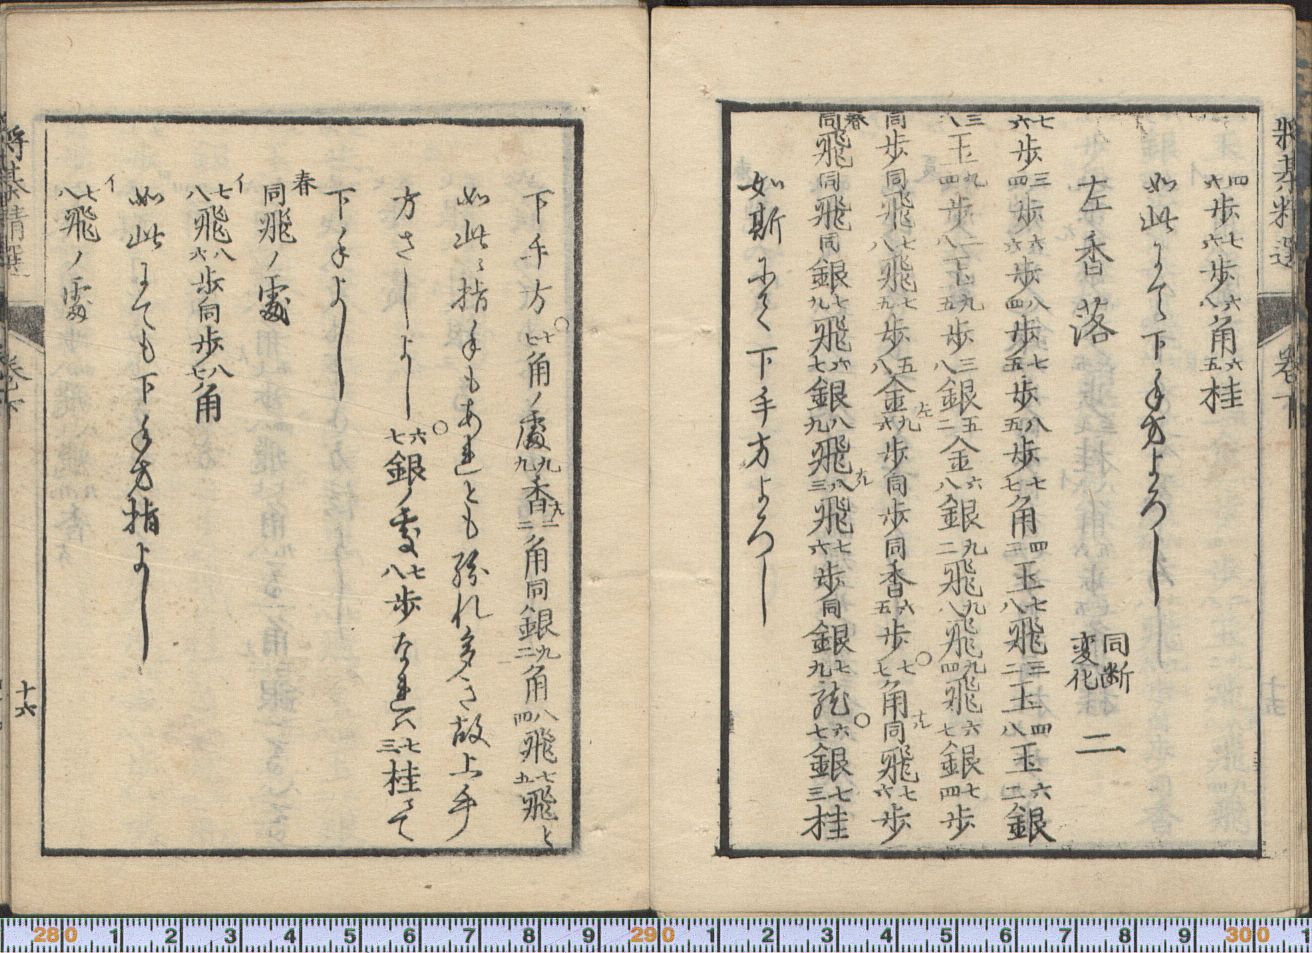 将棊精選
巻下
四六歩七六歩六八角六五桂
如此にても下手方よろし
左香落 同断変化 二
七六歩三四歩六六歩八四歩七五歩八五歩七七角四三玉七八飛三二玉四八玉六二銀
三八玉九四歩二八玉九五歩三八銀五二金六八銀九二飛九八飛九四飛六七銀七四歩
同歩同飛七八飛七五歩五八金九六歩同歩同香六五歩七七角同飛七六歩
春
同飛同飛同銀七九飛六七銀八九飛八三飛七六歩同銀七九龍六七銀七三桂
如斯にて下手方よろし
下手方七七角ノ處九九香九二
二角同銀九二角八四飛七五飛と
如此指手もあれとも紛れ多き故上手
方さしよし 六七銀ノ處七八歩なれハ七三桂にて
下手よし
春
同飛ノ處
イ
七八飛八六歩同歩八七角
如此にても下手方指よし
イ
七八飛ノ處
将棊精選
巻下
十六